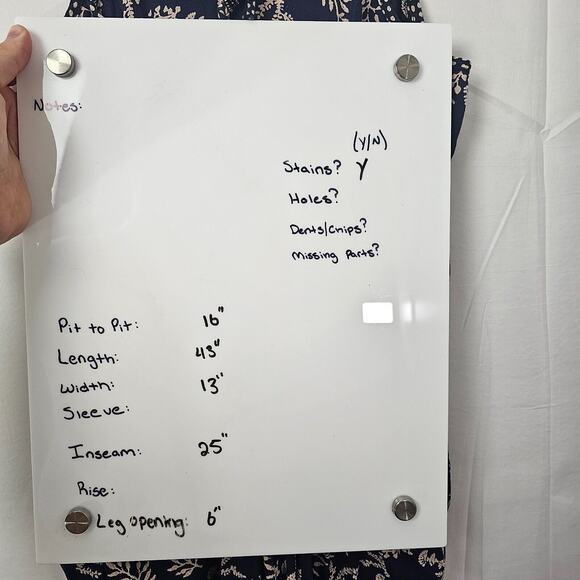 Notes:
(Y/N)
Stains? Y
Holes?
Dents/Chips?
Missing Parts?
Pit to Pit: 16"
Length: 43"
Width: 13"
Sleeve:
Inseam: 25"
Rise:
Leg opening: 6"